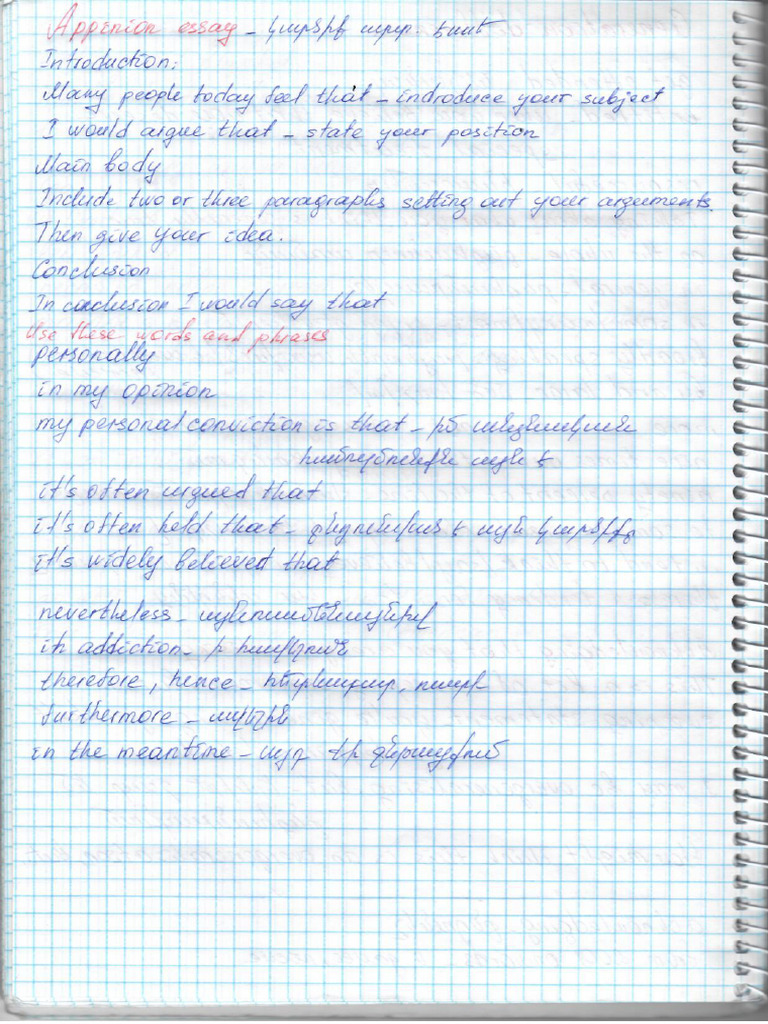 Appenion essay – կարծիք արտ. էսսե
Introduction:
Many people today feel that – indroduce your subject
I would argue that – state your position
Main body
Include two or three paragraphs setting out your arguments.
Then give your idea.
Conclusion
In conclusion I would say that
Use these words and phrases
personally
in my opinion
my personal conviction is that – իմ անձնական
համոզմունքն այն է
it's often urgued that
it's often held that – ընդունված է այն կարծիքը
it's widely believed that
nevertheless – այնուամենայնիվ
in addiction – ի հավելումն
therefore, hence – հետևաբար, ուստի
furthermore – ավելին
in the meantime – այդ ընթացքում